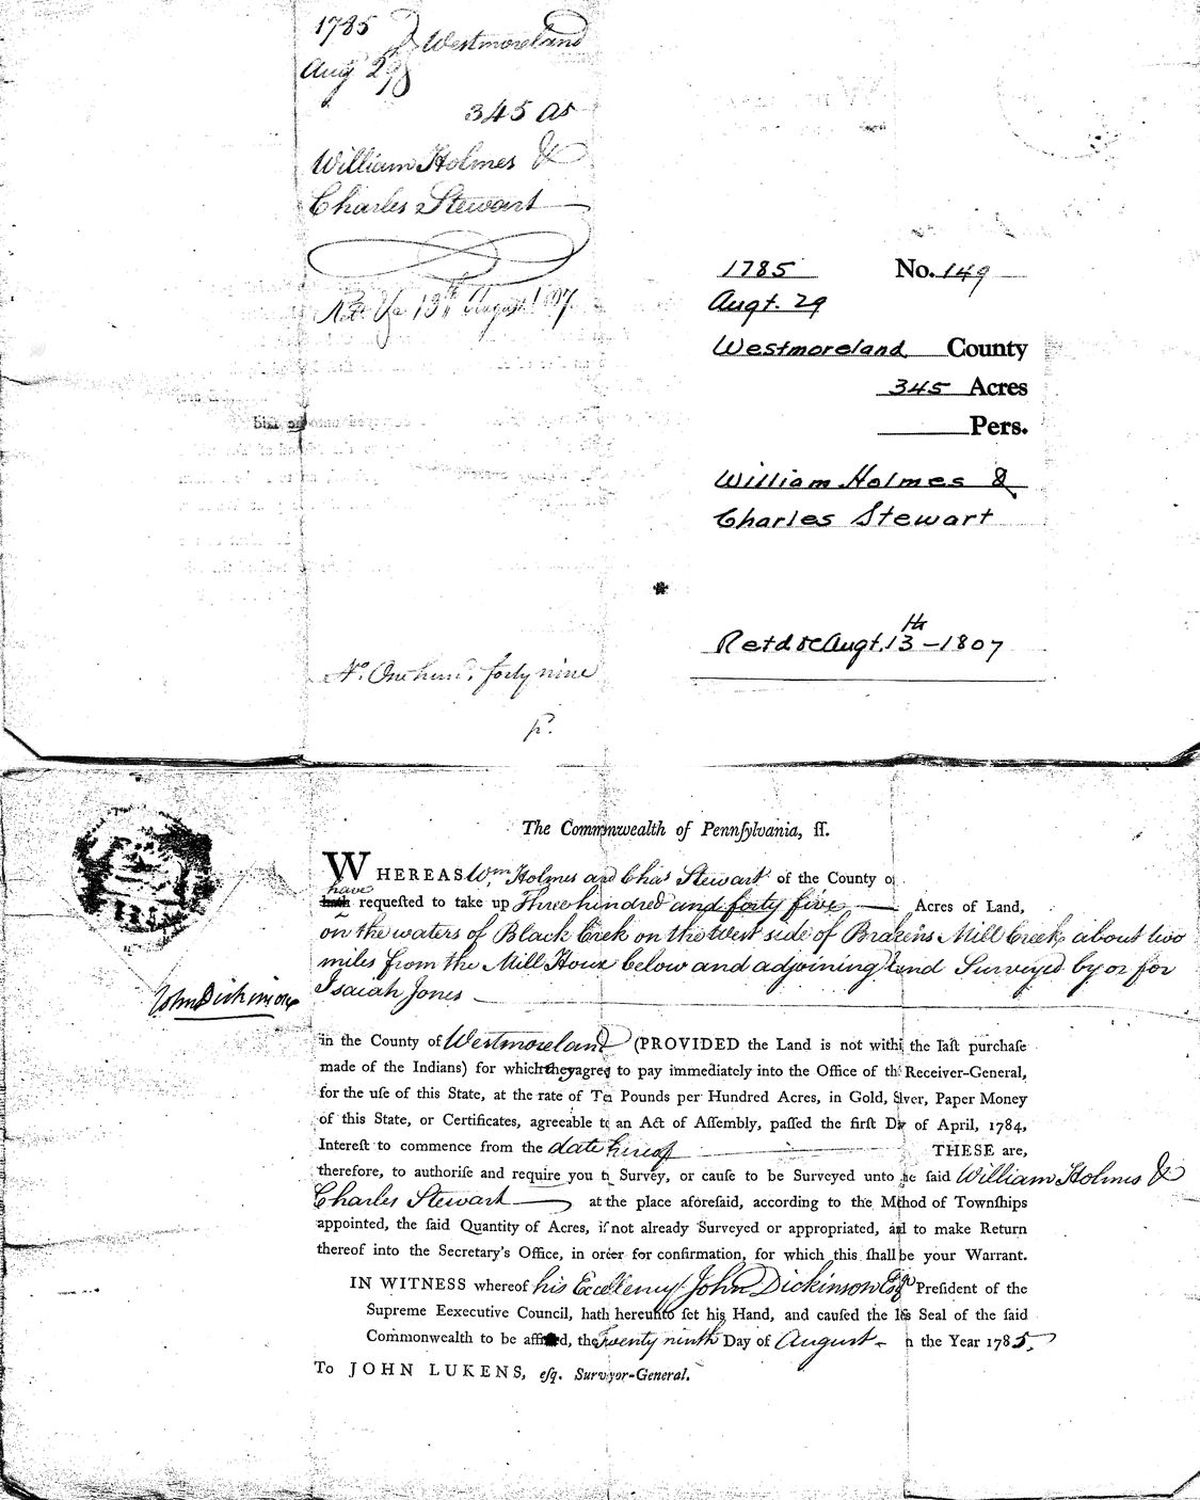 1785 Westmoreland
Augt 29
345 as
William Holmes &
Charles Stewart
13th August 1807
No. One hund. forty nine
p.
1785 No. 149
Augt. 29
Westmoreland County
345 Acres
Pers.
William Holmes &
Charles Stewart
Retd &c Augt. 13th - 1807
The Commonwealth of Pennſylvania, ſſ.
WHEREAS Wm. Holmes and Chas Stewart of the County of
have
hath requeſted to take up Three hundred and forty five Acres of Land,
on the waters of Black Creek on the West side of Brakens Mill Creek about two
miles from the Mill House below and adjoining land Surveyed by or for
Isaiah Jones
John Dickinson
in the County of Westmoreland (PROVIDED the Land is not within the laſt purchaſe
made of the Indians) for which they agree to pay immediately into the Office of the Receiver-General,
for the uſe of this State, at the rate of Ten Pounds per Hundred Acres, in Gold, Silver, Paper Money
of this State, or Certificates, agreeable to an Act of Aſſembly, paſſed the firſt Day of April, 1784,
Intereſt to commence from the date hereof THESE are,
therefore, to authoriſe and require you to Survey, or cauſe to be Surveyed unto the ſaid William Holmes &
Charles Stewart at the place aforeſaid, according to the Method of Townſhips
appointed, the ſaid Quantity of Acres, if not already Surveyed or appropriated, and to make Return
thereof into the Secretary's Office, in order for confirmation, for which this ſhall be your Warrant.
IN WITNESS whereof his Excellency John Dickinson Esqr Preſident of the
Supreme Eexecutive Council, hath hereunto ſet his Hand, and cauſed the leſs Seal of the ſaid
Commonwealth to be affixed, the Twenty ninth Day of August in the Year 1785.
To JOHN LUKENS, eſq. Surveyor-General.